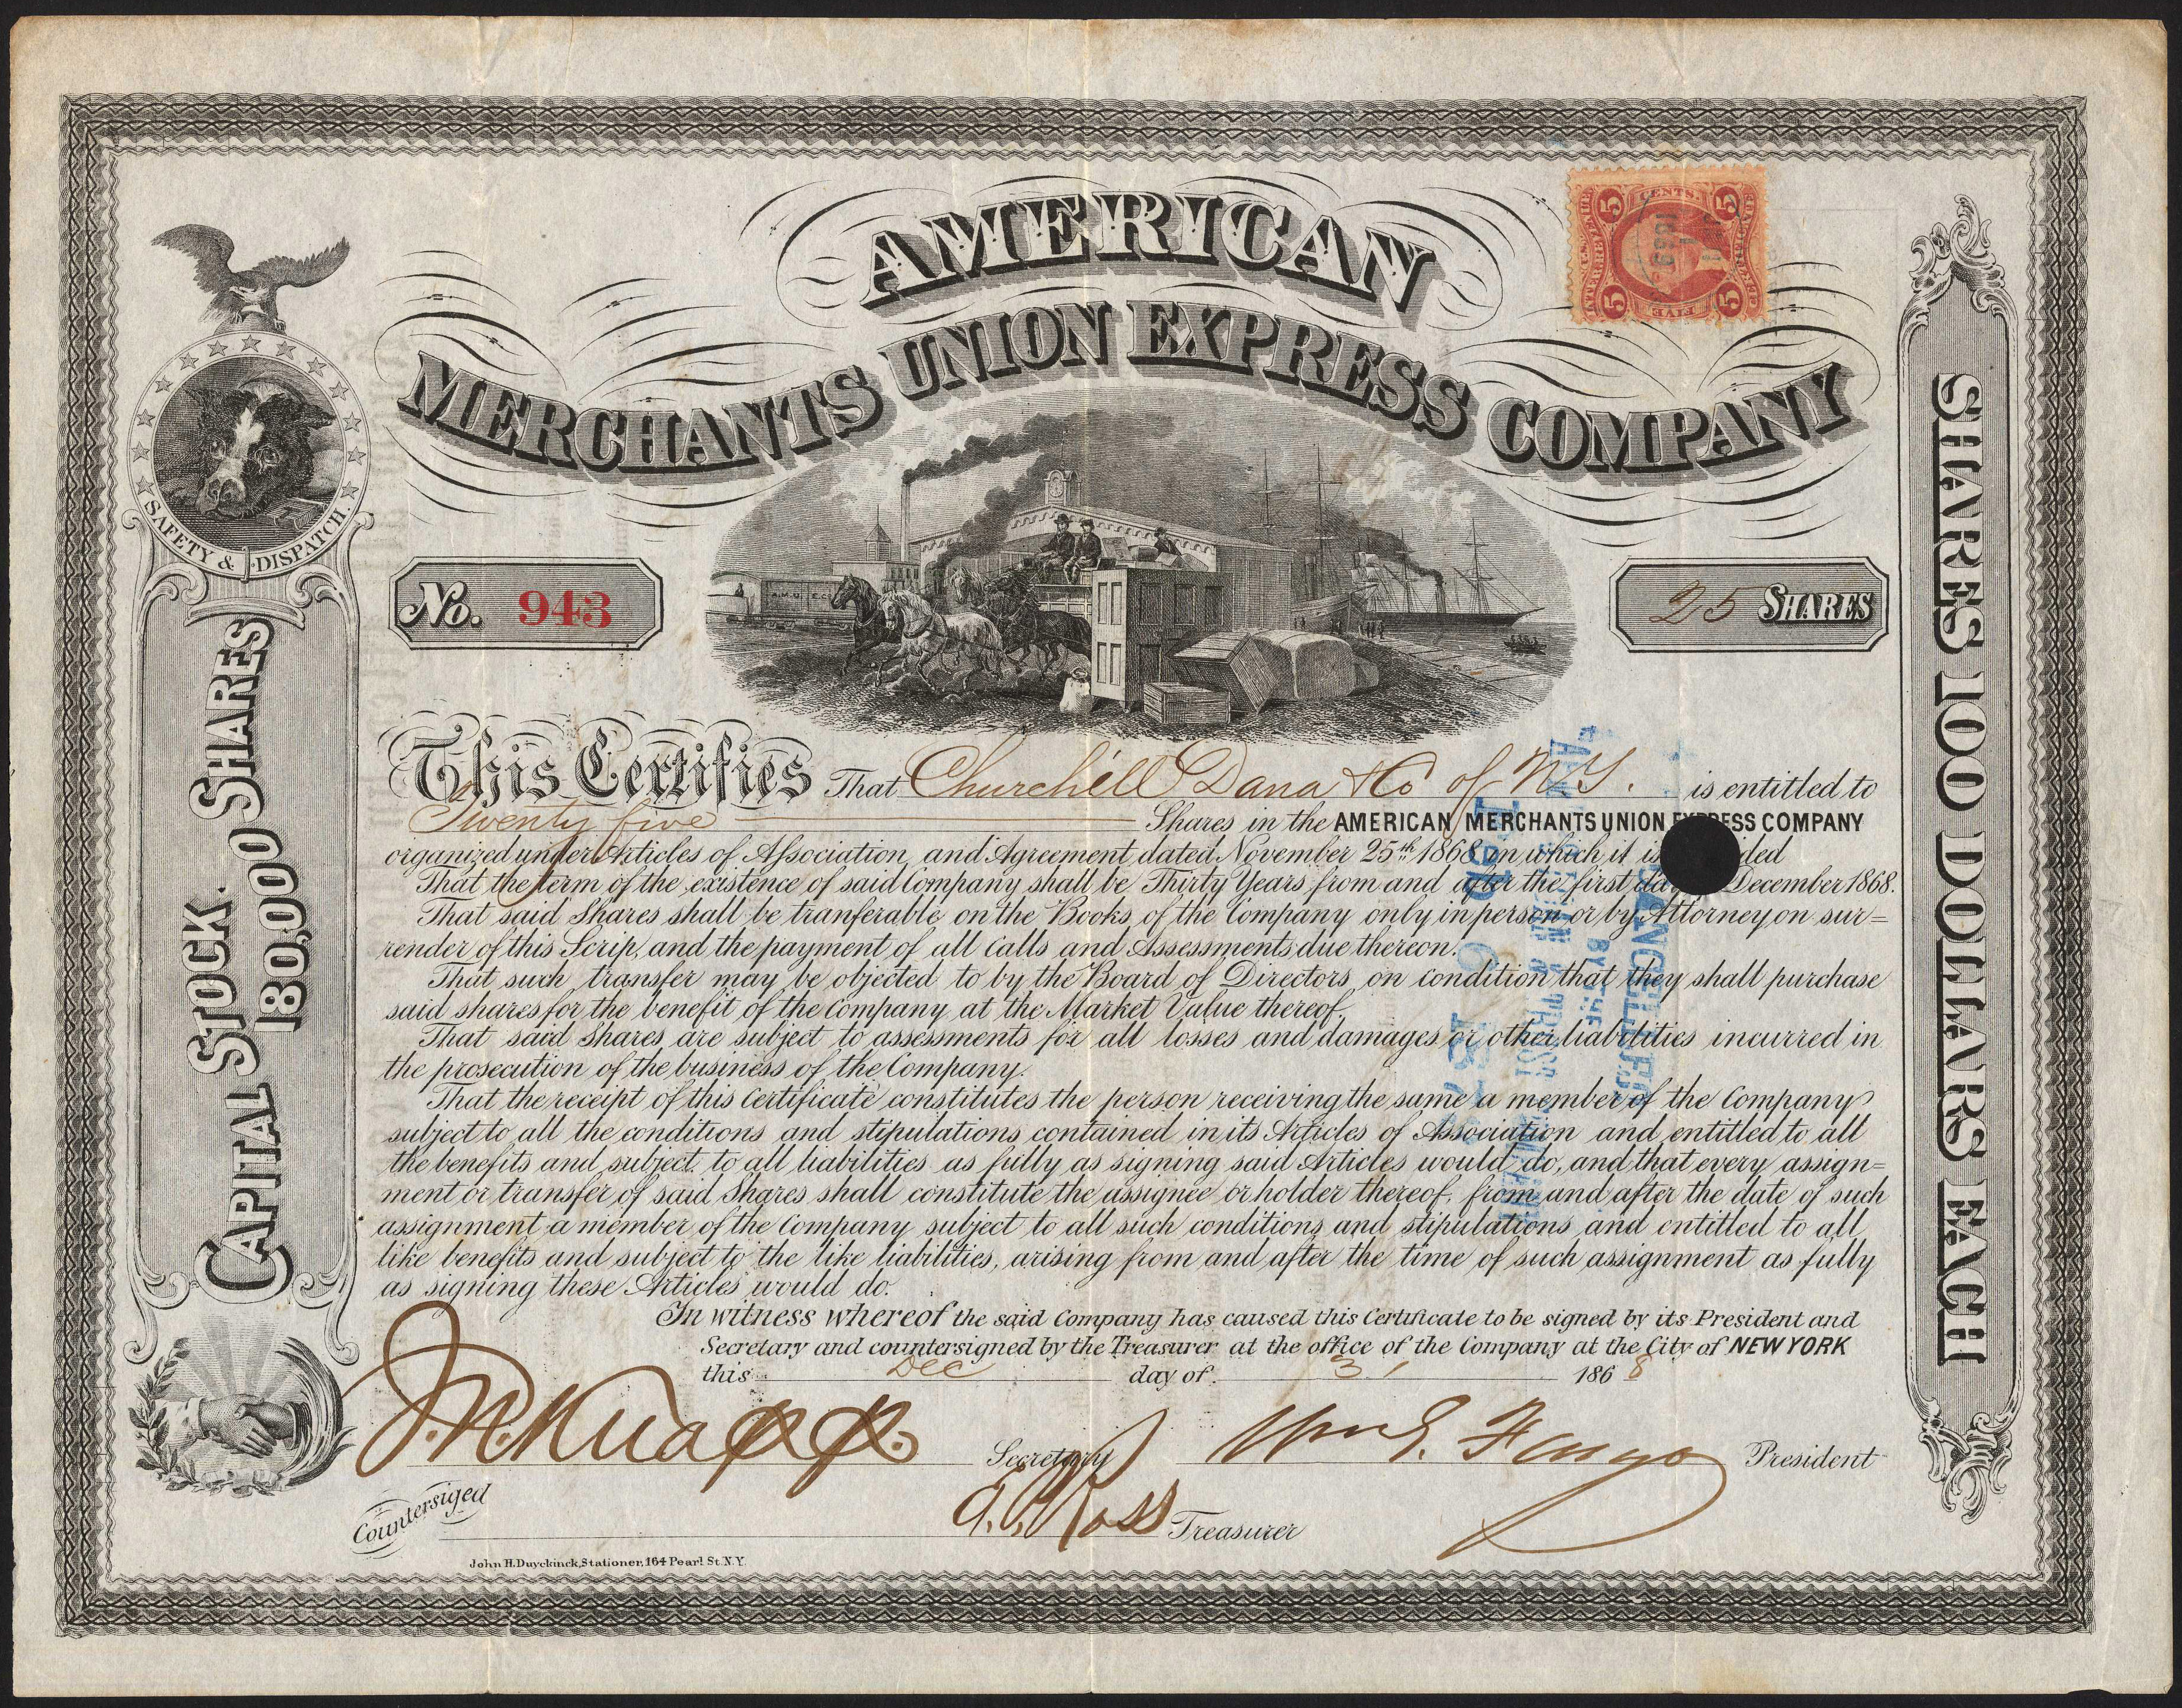 AMERICAN
MERCHANTS UNION EXPRESS COMPANY
5 CENTS. 5
INTER. REVENUE
5 FIVE 5
SAFETY & DISPATCH.
CAPITAL STOCK. 180,000 SHARES
SHARES 100 DOLLARS EACH
No. 943
A.M.U.
25 SHARES
This Certifies That Churchill Dana & Co of N.Y. is entitled to
Twenty five Shares in the AMERICAN MERCHANTS UNION EXPRESS COMPANY
organized under Articles of Association, and Agreement, dated November 25th 1868 in which it is ded
That the term of the existence of said Company shall be Thirty Years from and after the first day December 1868.
That said Shares shall be tranferable on the Books of the Company only in person or by Attorney on sur=
render of this Scrip, and the payment of all Calls and Assessments due thereon.
That such transfer may be objected to by the Board of Directors, on condition that they shall purchase
said shares for the benefit of the Company at the Market Value thereof.
That said Shares are subject to assessments for all losses and damages or other liabilities incurred in
the prosecution of the business of the Company.
That the receipt of this Certificate constitutes the person receiving the same a member of the Company
subject to all the conditions and stipulations contained in its Articles of Association and entitled to all
the benefits and subject to all liabilities as fully as signing said Articles would do, and that every assign=
ment or transfer of said Shares shall constitute the assignee or holder thereof, from and after the date of such
assignment a member of the Company subject to all such conditions and stipulations and entitled to all
like benefits and subject to the like liabilities, arising from and after the time of such assignment as fully
as signing these Articles would do.
In witness whereof the said Company has caused this Certificate to be signed by its President and
Secretary and countersigned by the Treasurer at the office of the Company at the City of NEW YORK
this Dec day of 3 1868
J.N. Knapp Secretary Wm G. Fargo President
Countersiged
Ross Treasurer
John H. Duyckinck, Stationer, 164 Pearl St. N.Y.
CANCELLED
BY THE